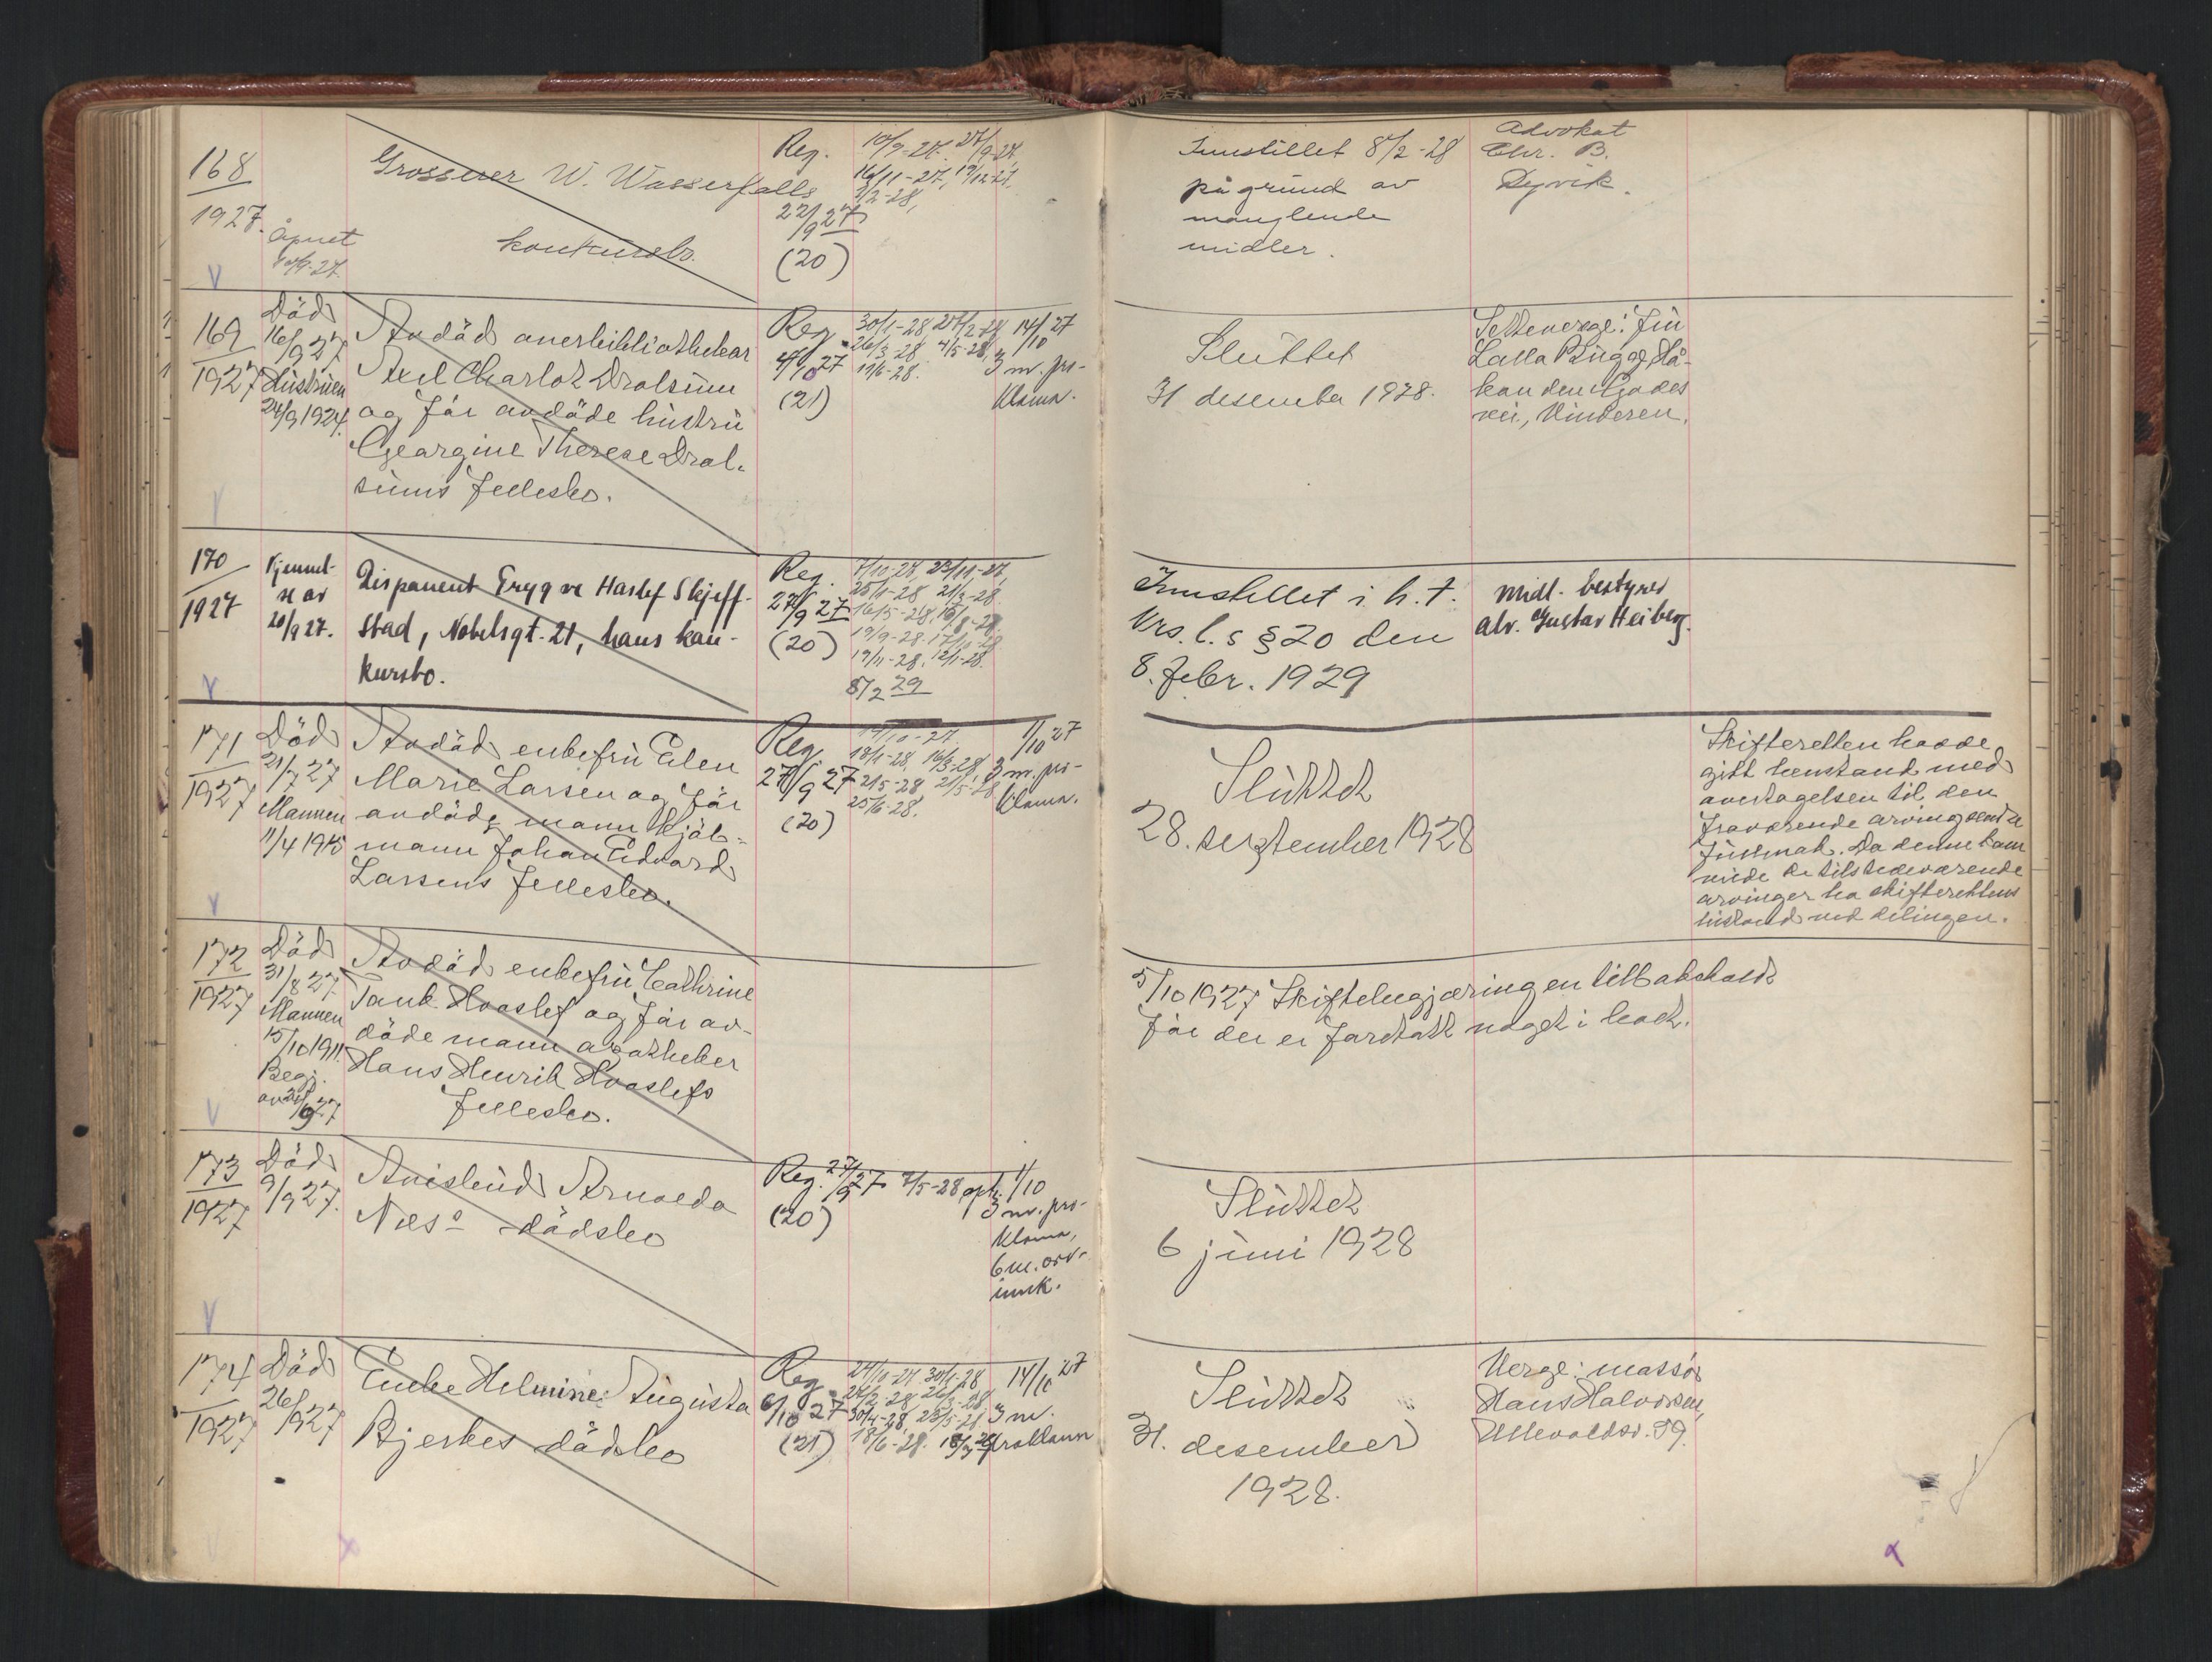 168
1927.
Åpnet
Grosserer W. Wasserfalls
konkursbo.
Reg.
22/9 27
(20)
10/9-27. 27/9-27,
16/11-27, 19/12-27.
8/2-28,
Innstillet 8/2-28
på grund av
manglende
midler.
Advokat
Chr. B.
Dyvik.
169
1927
Död
16/9 27
Hustruen
24/9 1924.
Avdöd overbibliothekar
Axel Charlot Drolsum
og för avdöde hustru
Georgine Therese Drol-
sums fellesbo.
Reg.
4/10 27
(21)
30/1-28 27/2-28
26/3-28 4/5-28,
11/6-28.
14/10 27
3 m. pro-
klama.
Sluttet
31 desember 1928.
Setteverge: frü
Lalla Bügge, Hå-
kon den Godes
vei, Vinderen.
170
1927
Kjennel-
se av
20/9 27.
Disponent Trygve Haslef Skjeff-
stad, Nobelsgt. 21, hans kon-
kursbo.
Reg.
27/9 27
(20)
7/10-27, 23/11-27,
25/1-28 21/3-28.
16/5-28, 15/8-28
19/9-28. 17/10-28
19/11-28. 12/1-28.
8/2 29
Innstillet i h. t.
krs. l. s § 20 den
8. febr. 1929
Midl. bestyrer
adv. Gustav Heiberg.
171
1927
Död
21/7 27
Mannen
11/4 1915
Avdöd enkefrü Elen
Marie Larsen og för
avdöde mann skjöt-
mann Johan Edvard
Larsens fellesbo.
Reg.
27/9 27
(20)
18/1-28, 16/3-28,
21/5-28 21/5-28
25/6-28.
1/10 27
3 m. pro-
klama.
Sluttet
28. september 1928
Skifteretten hadde
gitt henstand med
overtagelsen til den
fraværende arving sendte
fullmakt. Da denne kom
vilde de tilstedeværende
arvinger ha skifterettens
bistand ved delingen.
172
1927
Död
31/8 27
Mannen
15/10 1911.
Begj.
av 21/9 27
Avdöd enkefrü Cathrine
Tank Hvoslef og för av-
döde mann apotheker
Hans Henrik Hvoslefs
fellesbo.
5/10 1927 Skiftebegjæringen tilbakekaldt
för der er foretatt noget i boet.
173
1927
Död
9/9 27.
Arnolda
Næss dödsbo
Reg. 27/9 27
(20)
7/5-28 oph.
1/10
3 m. pro-
klama,
6 m. arv-
innk.
Sluttet
6 juni 1928
174
1927
Död
26/9 27
Enke Helmine Augusta
Bjerkes dödsbo
Reg.
6/10 27
(21)
24/10-27. 30/1-28
27/2-28 26/3-28
30/4-28, 23/5-28
18/6-28.
14/10 27
3 m.
proklama
Sluttet
31. desember
1928.
Verge: massör
Hans Halvorsen,
Ullevoldsv. 59.